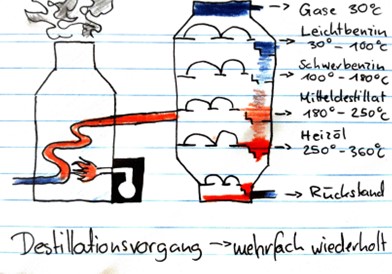 Gase 30°C
Leichtbenzin
30° - 100°C
Schwerbenzin
100° - 180°C
Mitteldestillat
180° - 250°C
Heizöl
250° - 360°C
Rückstand
Destillationsvorgang → mehrfach wiederholt